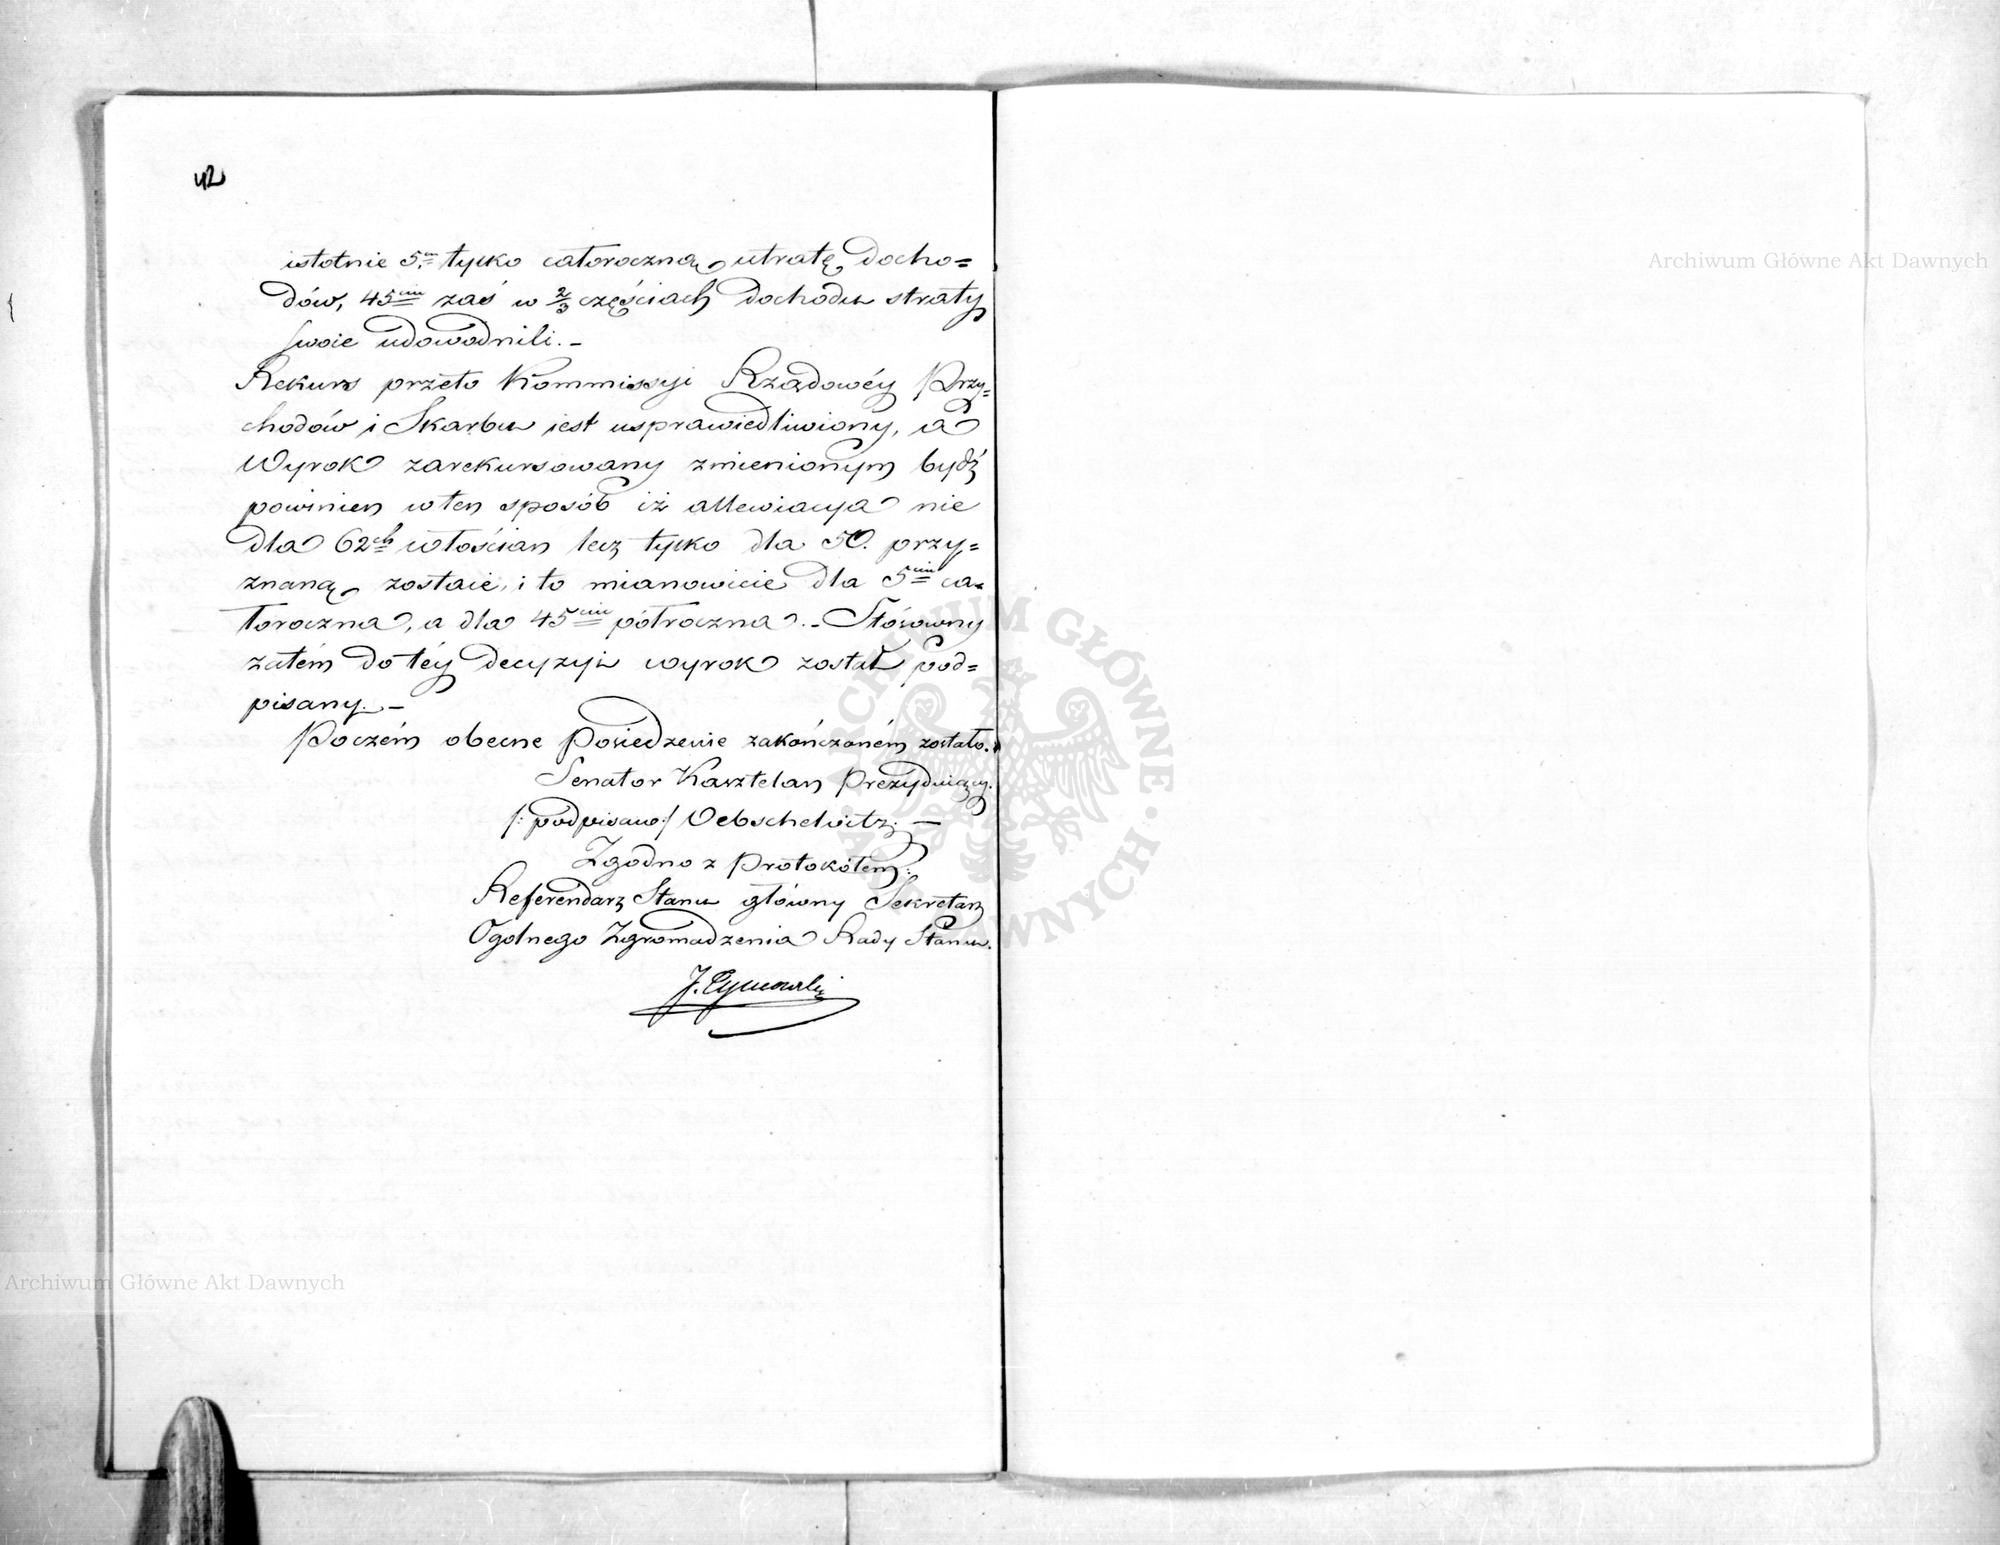 42
istotnie 5.m tylko całoroczną utratę docho=
dów, 45ciu zaś w 2/3 częściach dochodu straty
swoie udowodnili. –
Rekurs przeto Kommissyi Rządowéy Przy=
chodów i Skarbu iest usprawiedliwiony, a
Wyrok zarekursowany zmienionym bydź
powinien w ten sposób iż allewiacya nie
dla 62ch włościan lecz tylko dla 50. przy=
znaną zostaie, i to mianowicie dla 5ciu ca=
łoroczna, a dla 45ciu półroczna. – Stósowny
zatém do téy decyzyi wyrok został pod=
pisany. –
Poczém obecne Posiedzenie zakończoném zostało.
Senator Kasztelan Prezyduiący.
/: podpisano :/ Oebschelwitz. –
Zgodno z Protokółem:
Referendarz Stanu główny Sekretarz
Ogolnego Zgromadzenia Rady Stanu.
J. Tymowski
Archiwum Główne Akt Dawnych
Archiwum Główne Akt Dawnych
ARCHIWUM GŁÓWNE AKT DAWNYCH